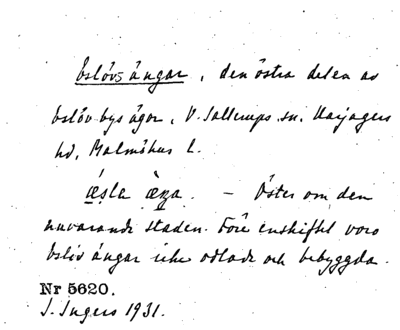 Eslövs ängar, den östra delen av
Eslöv bys ägor, V. Sallerups sn. Harjagers
hd, Malmöhus l.
— Öster om den
nuvarande staden. Före enskiftet voro
Eslöv ängar icke odlade och bebyggda.
Nr 5620.
J. Ingers 1931.